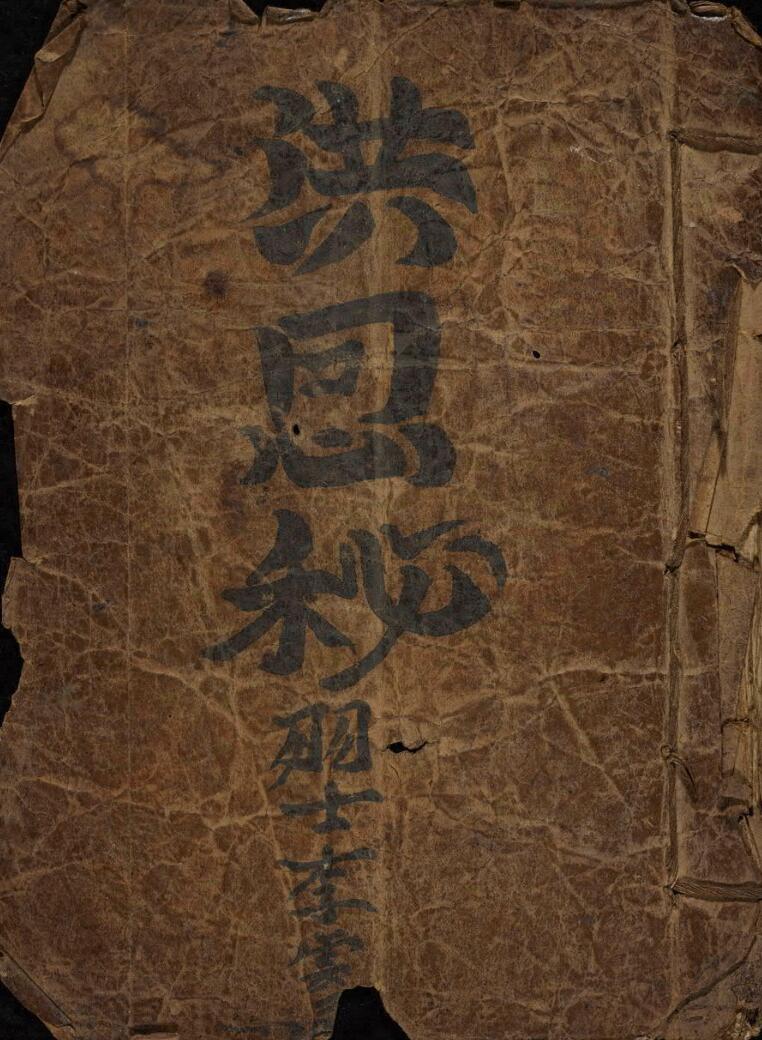 洪恩秘
羽士李雲